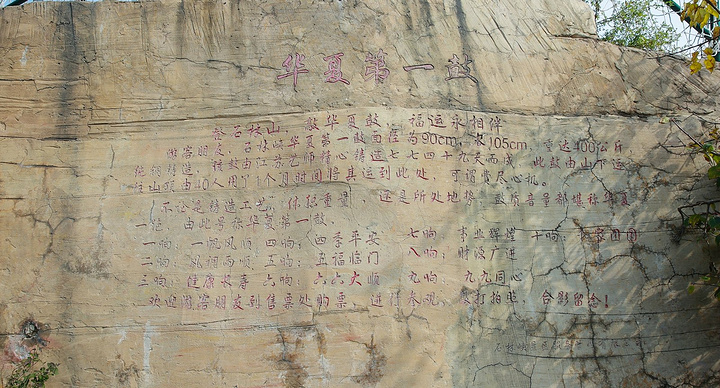 华夏第一鼓
登石林山，敲华夏鼓，福运永相伴
游客朋友，石林峡华夏第一鼓面径为90cm，长105cm，重达400公斤，
纯铜铸造，该鼓由江苏艺师精心铸造七七四十九天而成，此鼓由山下运
往山顶由40人用了1个月时间将其运到此处，可谓费尽心机。
不论是铸造工艺，体积重量，还是所处地势，鼓质音量都堪称华夏
一绝，由此号称华夏第一鼓。
一响：一帆风顺 四响：四季平安 七响：事业辉煌 十响：团团圆圆
二响：风调雨顺 五响：五福临门 八响：财源广进
三响：健康长寿 六响：六六大顺 九响：九九同心
欢迎游客朋友到售票处购票，进行参观，敲打拍照，合影留念！